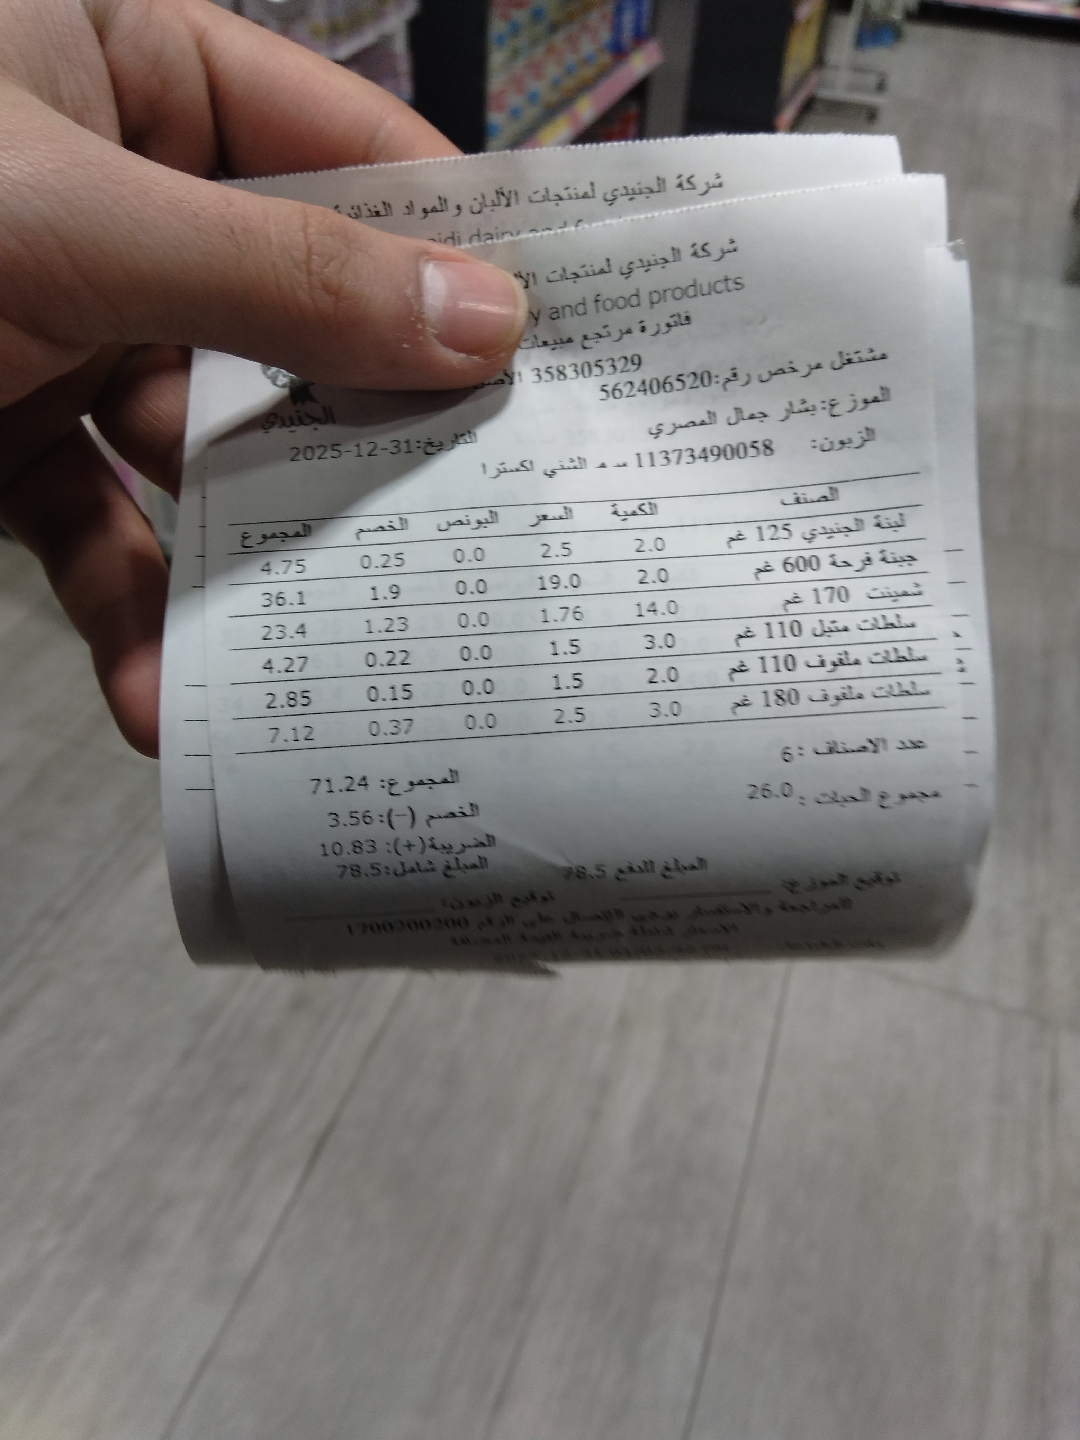 شركة الجنيدي لمنتجات الألبان والمواد الغذائية
dairy and
شركة الجنيدي لمنتجات
and food products
فاتورة مرتجع مبيعات
358305329
مشتغل مرخص رقم:562406520
الجنيدي
الموزع: بشار جمال المصري
التاريخ:31-12-2025
الزبون: 11373490058 س م الشني اكسترا
الصنف الكمية السعر البونص الخصم المجموع
لبنة الجنيدي 125 غم 2.0 2.5 0.0 0.25 4.75
جبنة فرحة 600 غم 2.0 19.0 0.0 1.9 36.1
شمينت 170 غم 14.0 1.76 0.0 1.23 23.4
سلطات متبل 110 غم 3.0 1.5 0.0 0.22 4.27
سلطات ملفوف 110 غم 2.0 1.5 0.0 0.15 2.85
سلطات ملفوف 180 غم 3.0 2.5 0.0 0.37 7.12
عدد الاصناف :6
المجموع: 71.24
مجموع الحبات : 26.0
الخصم (-):3.56
الضريبة(+): 10.83
المبلغ شامل:78.5
المبلغ للدفع 78.5
توقيع الموزع:
توقيع الزبون:
للمراجعة والاستفسار يرجى الاتصال على الرقم 1700200200
الاسعار شاملة ضريبة القيمة المضافة